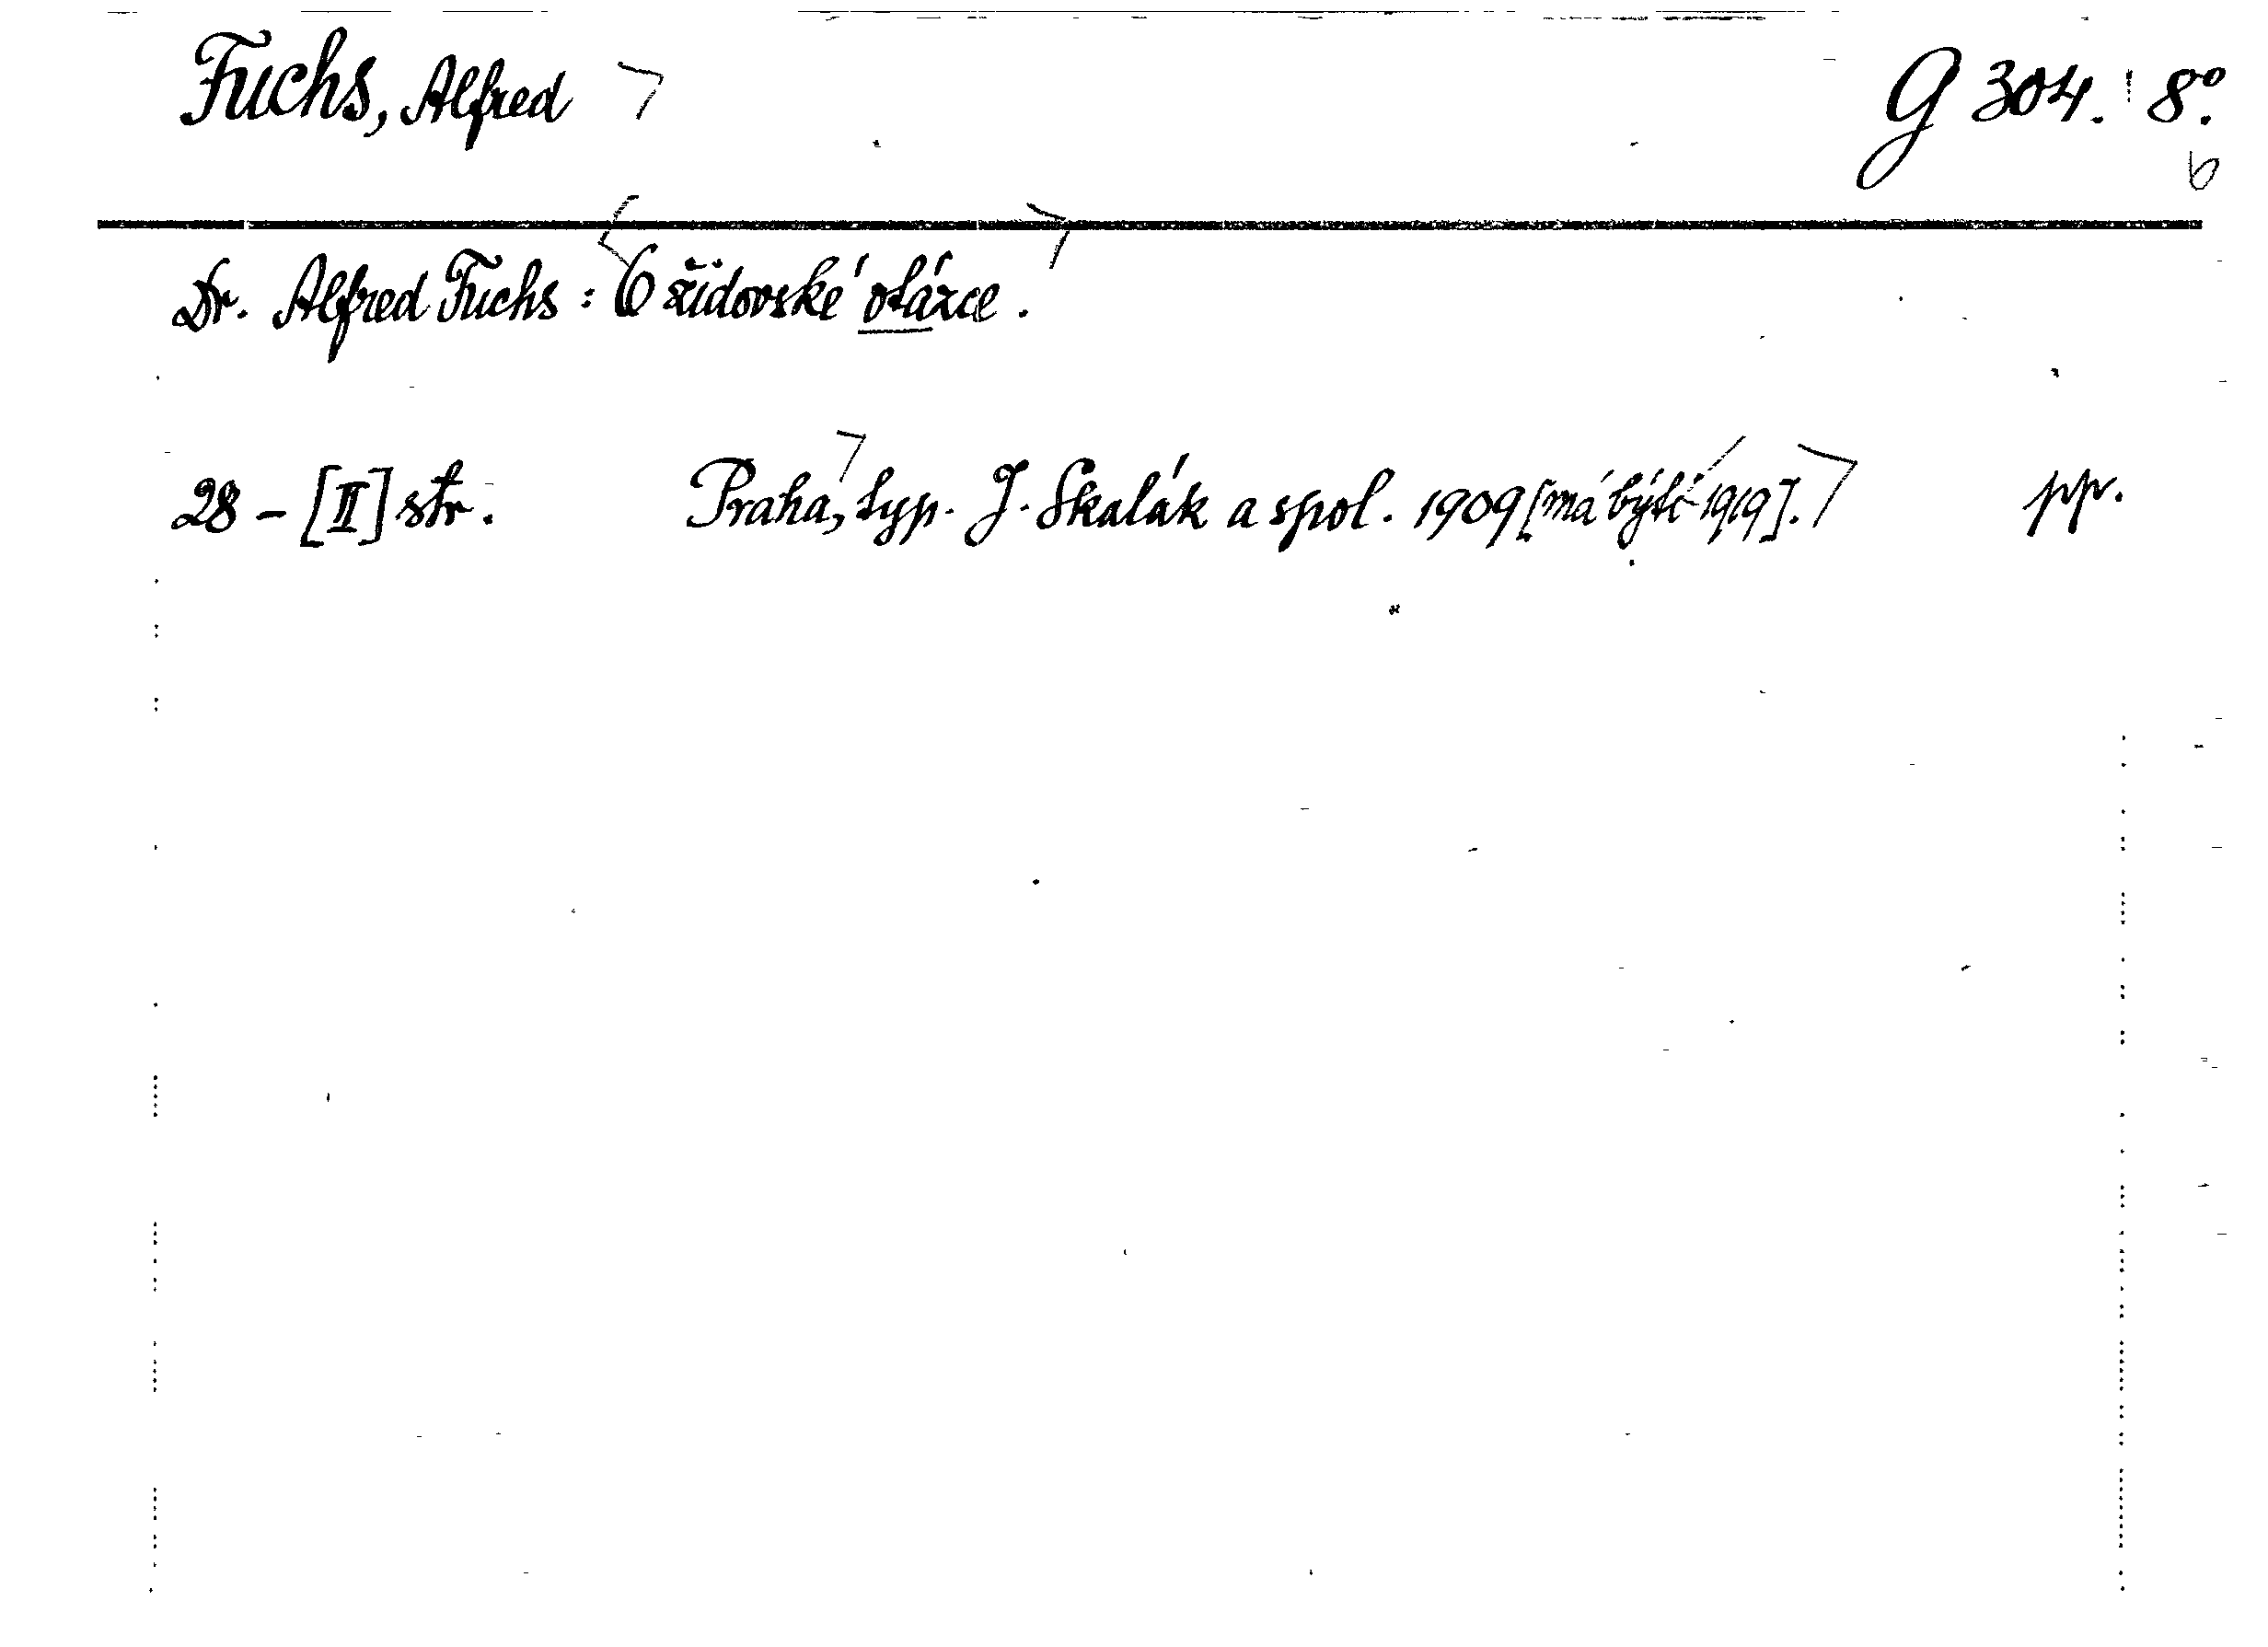 Fuchs, Alfred G 304. 8°.
6
Dr. Alfred Fuchs: O židovské otázce.
28 - [II] str. Praha, typ. J. Skalák a spol. 1909 [má býti 1919]. pp.